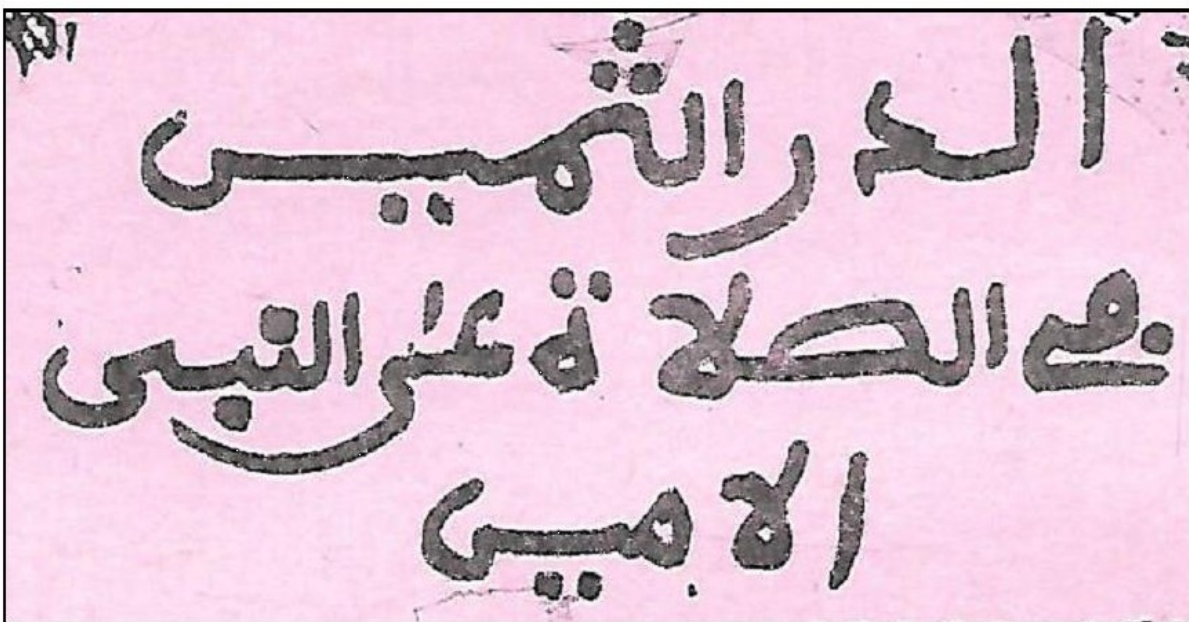 الدر الثمين
في الصلاة على النبي
الامين